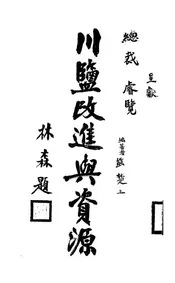 呈獻
總裁 睿覽
編著者 蘇楚 上
川鹽改進與資源
林森題